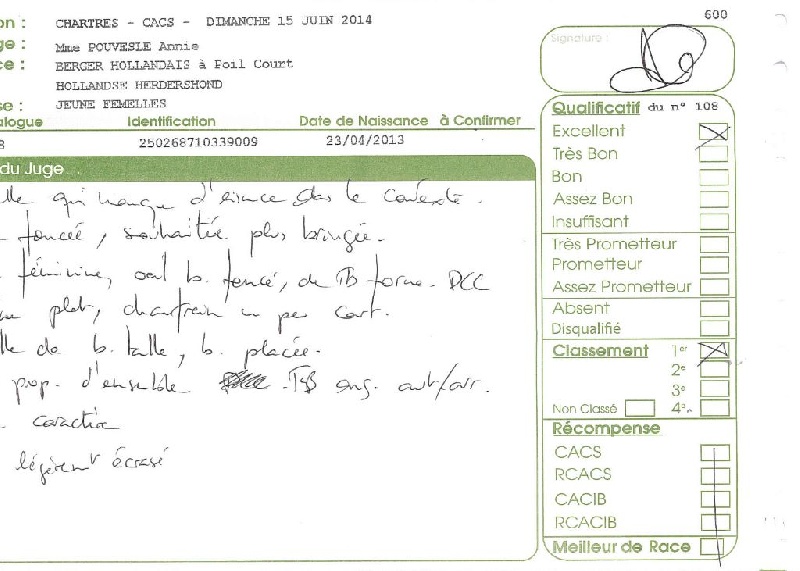 on : CHARTRES - CACS - DIMANCHE 15 JUIN 2014
ge : Mme POUVESLE Annie
ce : BERGER HOLLANDAIS à Poil Court
HOLLANDSE HERDERSHOND
se : JEUNE FEMELLES
alogue Identification Date de Naissance à Confirmer
8 250268710339009 23/04/2013
du Juge
lle qui manque d'aisance dans le
foncée, souhaitée plus bringée.
féminine, oeil b. foncé, de TB forme. DCC
plat, un peu court.
lle de b. taille, b. placée.
prop. d'ensemble TB ang. avt/arr.
caractère
légèremt écrasé
600
Signature :
Qualificatif du n° 108
Excellent
Très Bon
Bon
Assez Bon
Insuffisant
Très Prometteur
Prometteur
Assez Prometteur
Absent
Disqualifié
Classement 1er
2e
3e
Non Classé 4e
Récompense
CACS
RCACS
CACIB
RCACIB
Meilleur de Race